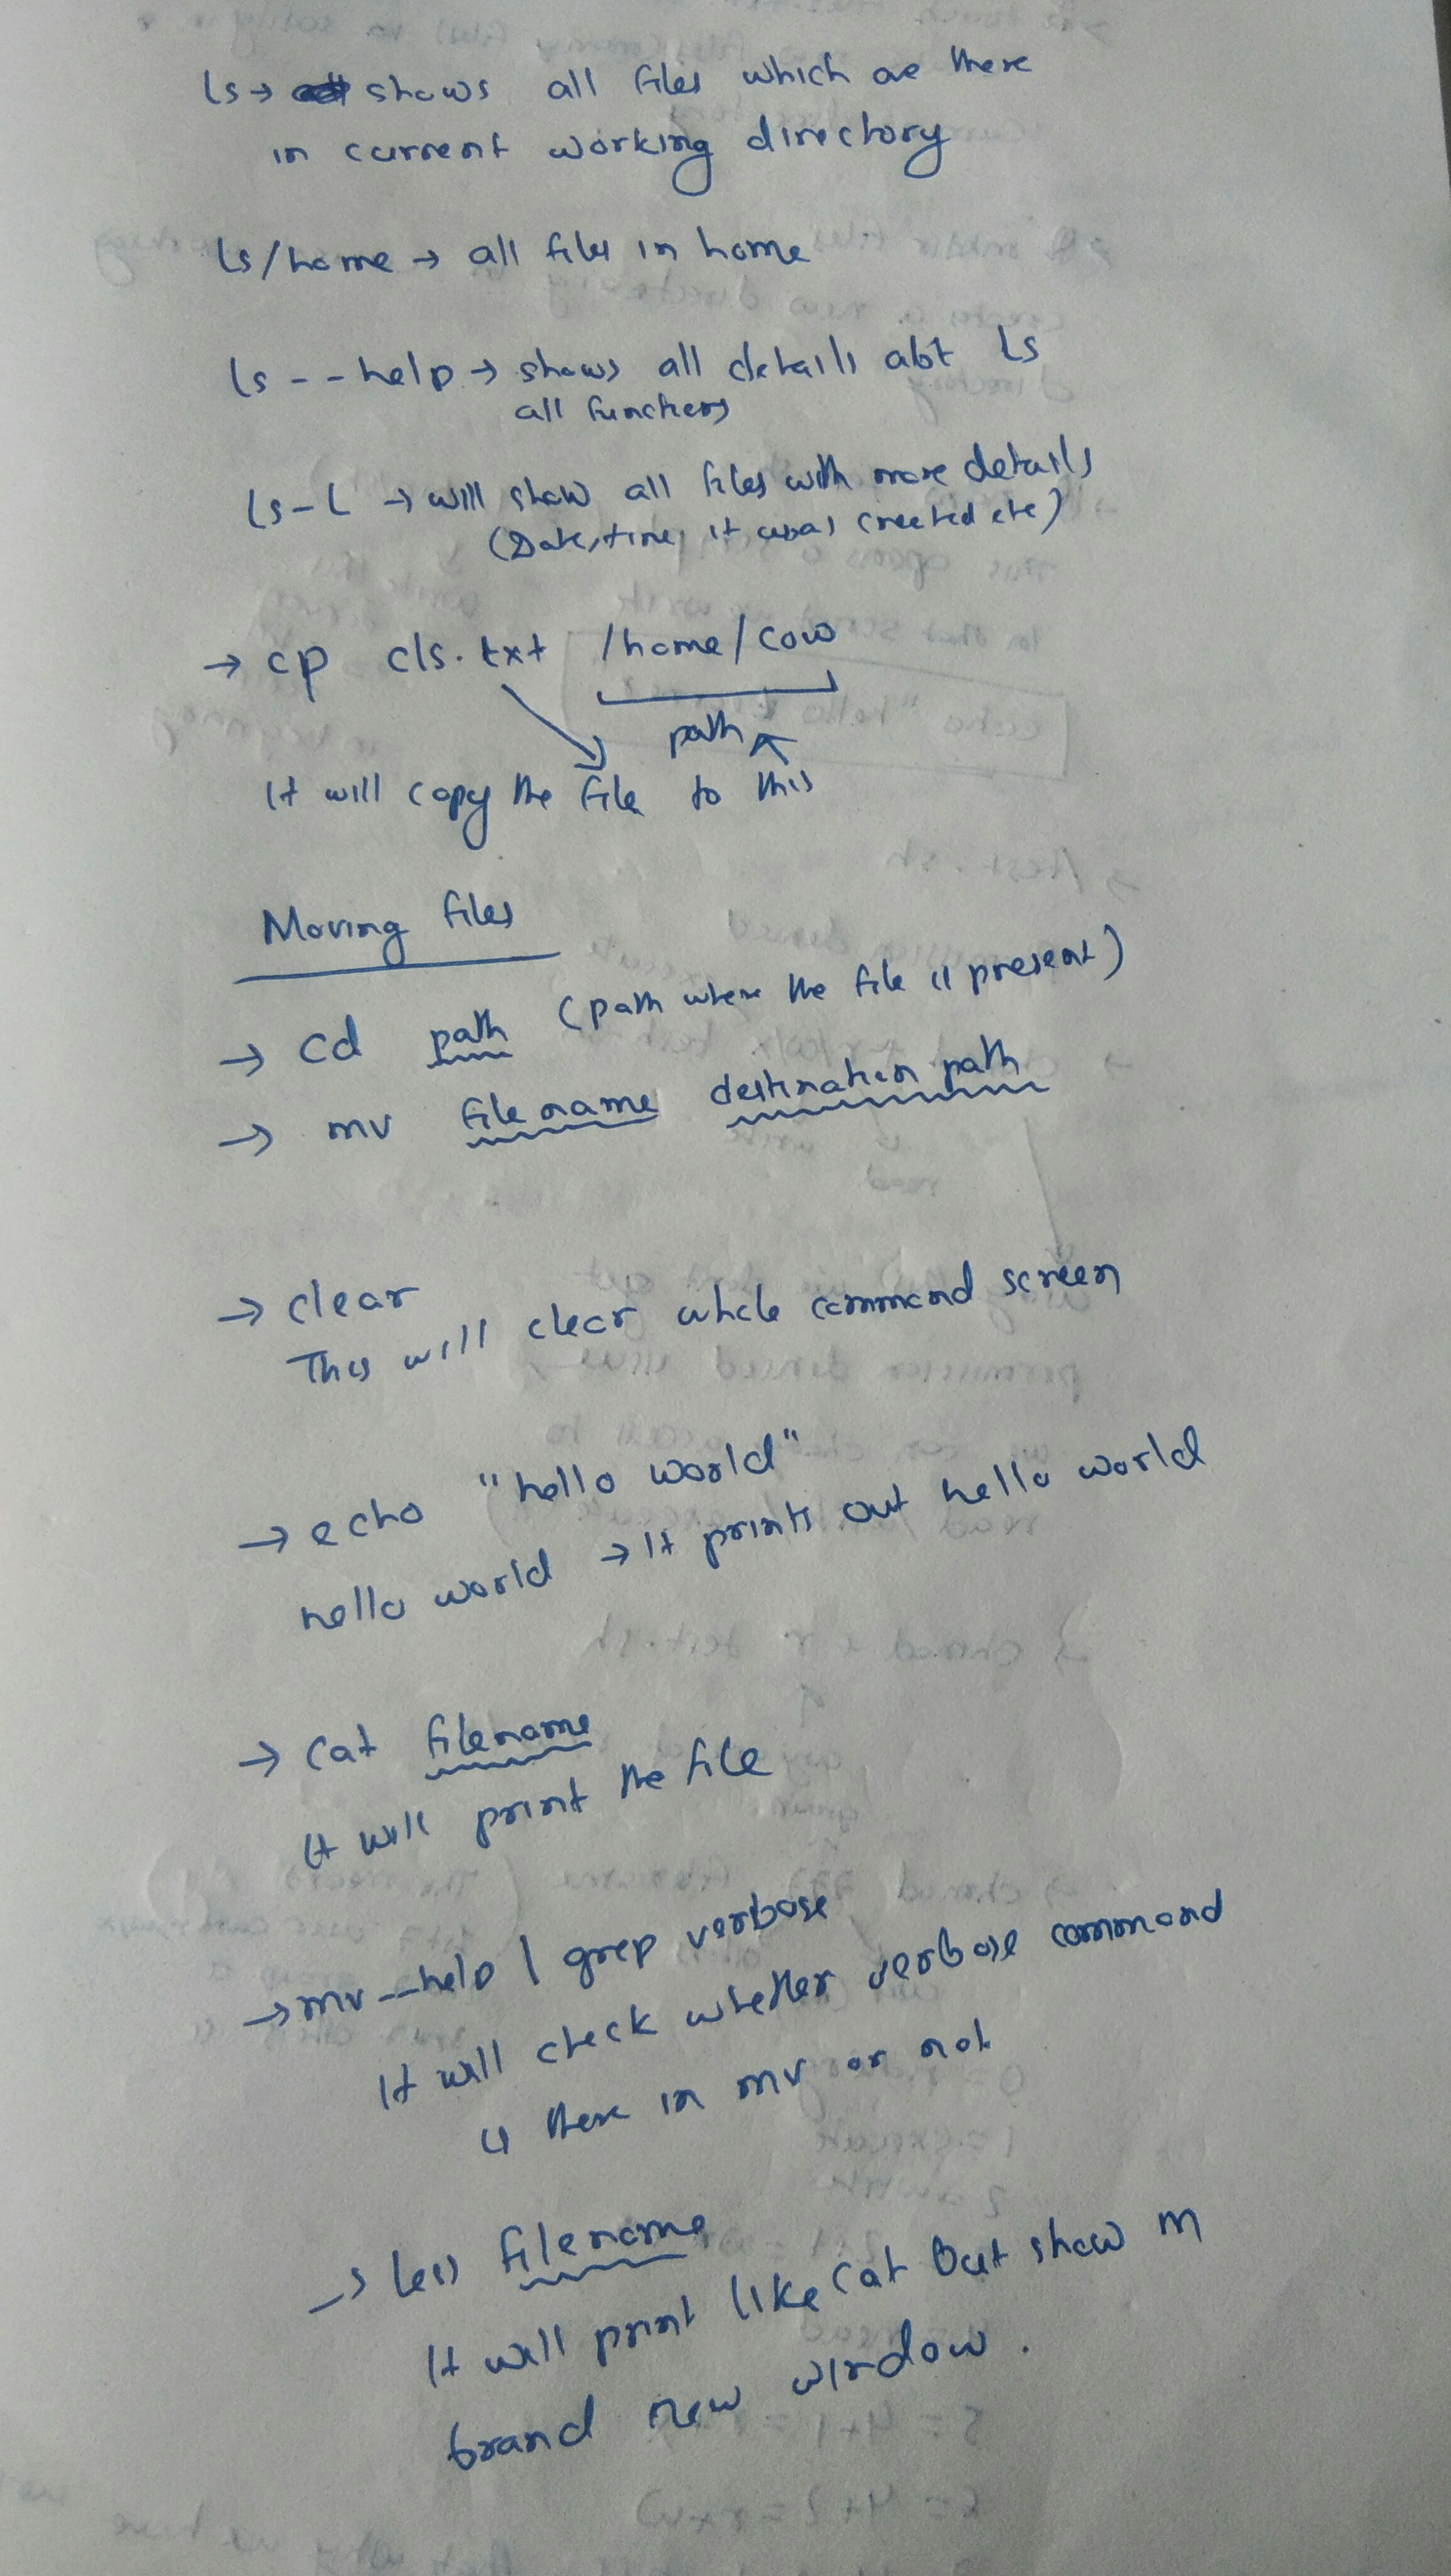 ls → shows all files which are there
in current working directory
ls/home → all files in home
ls --help → shows all details abt ls
all functions
ls -l → will show all files with more details
(Date, time, it was created etc)
→ cp cls.txt /home/cow
path
It will copy the file to this
Moving files
→ cd path (path where the file is present)
→ mv filename destination path
→ clear
This will clear whole command screen
→ echo "hello world"
hello world → It prints out hello world
→ cat filename
It will print the file
→ mv --help | grep verbose
It will check whether verbose command
is there in mv or not
→ less filename
It will print like cat but show in
brand new window.